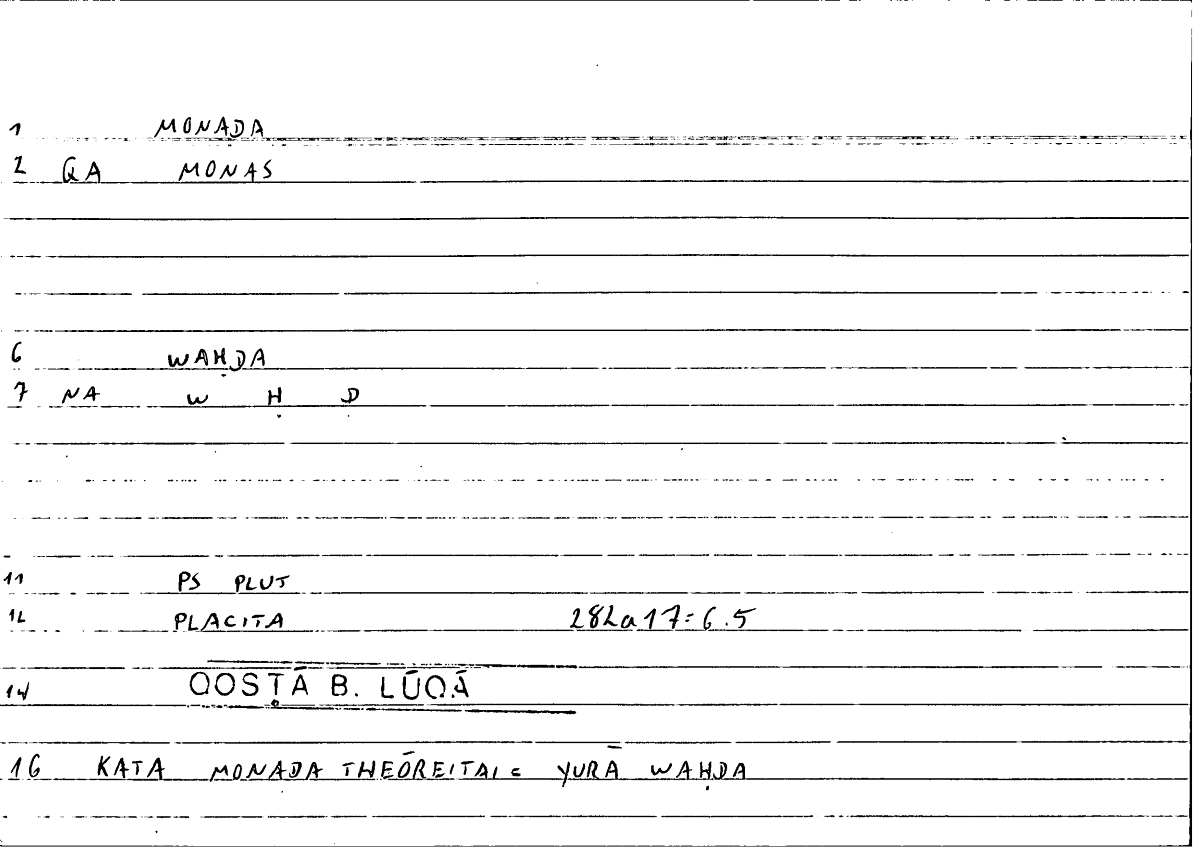 1 MONADA
2 QA MONAS
6 WAḤDA
7 NA W Ḥ D
11 PS PLUT
12 PLACITA 282a17=6.5
14 QOSṬĀ B. LŪQĀ
16 KATA MONADA THEŌREITAI = YURĀ WAḤDA